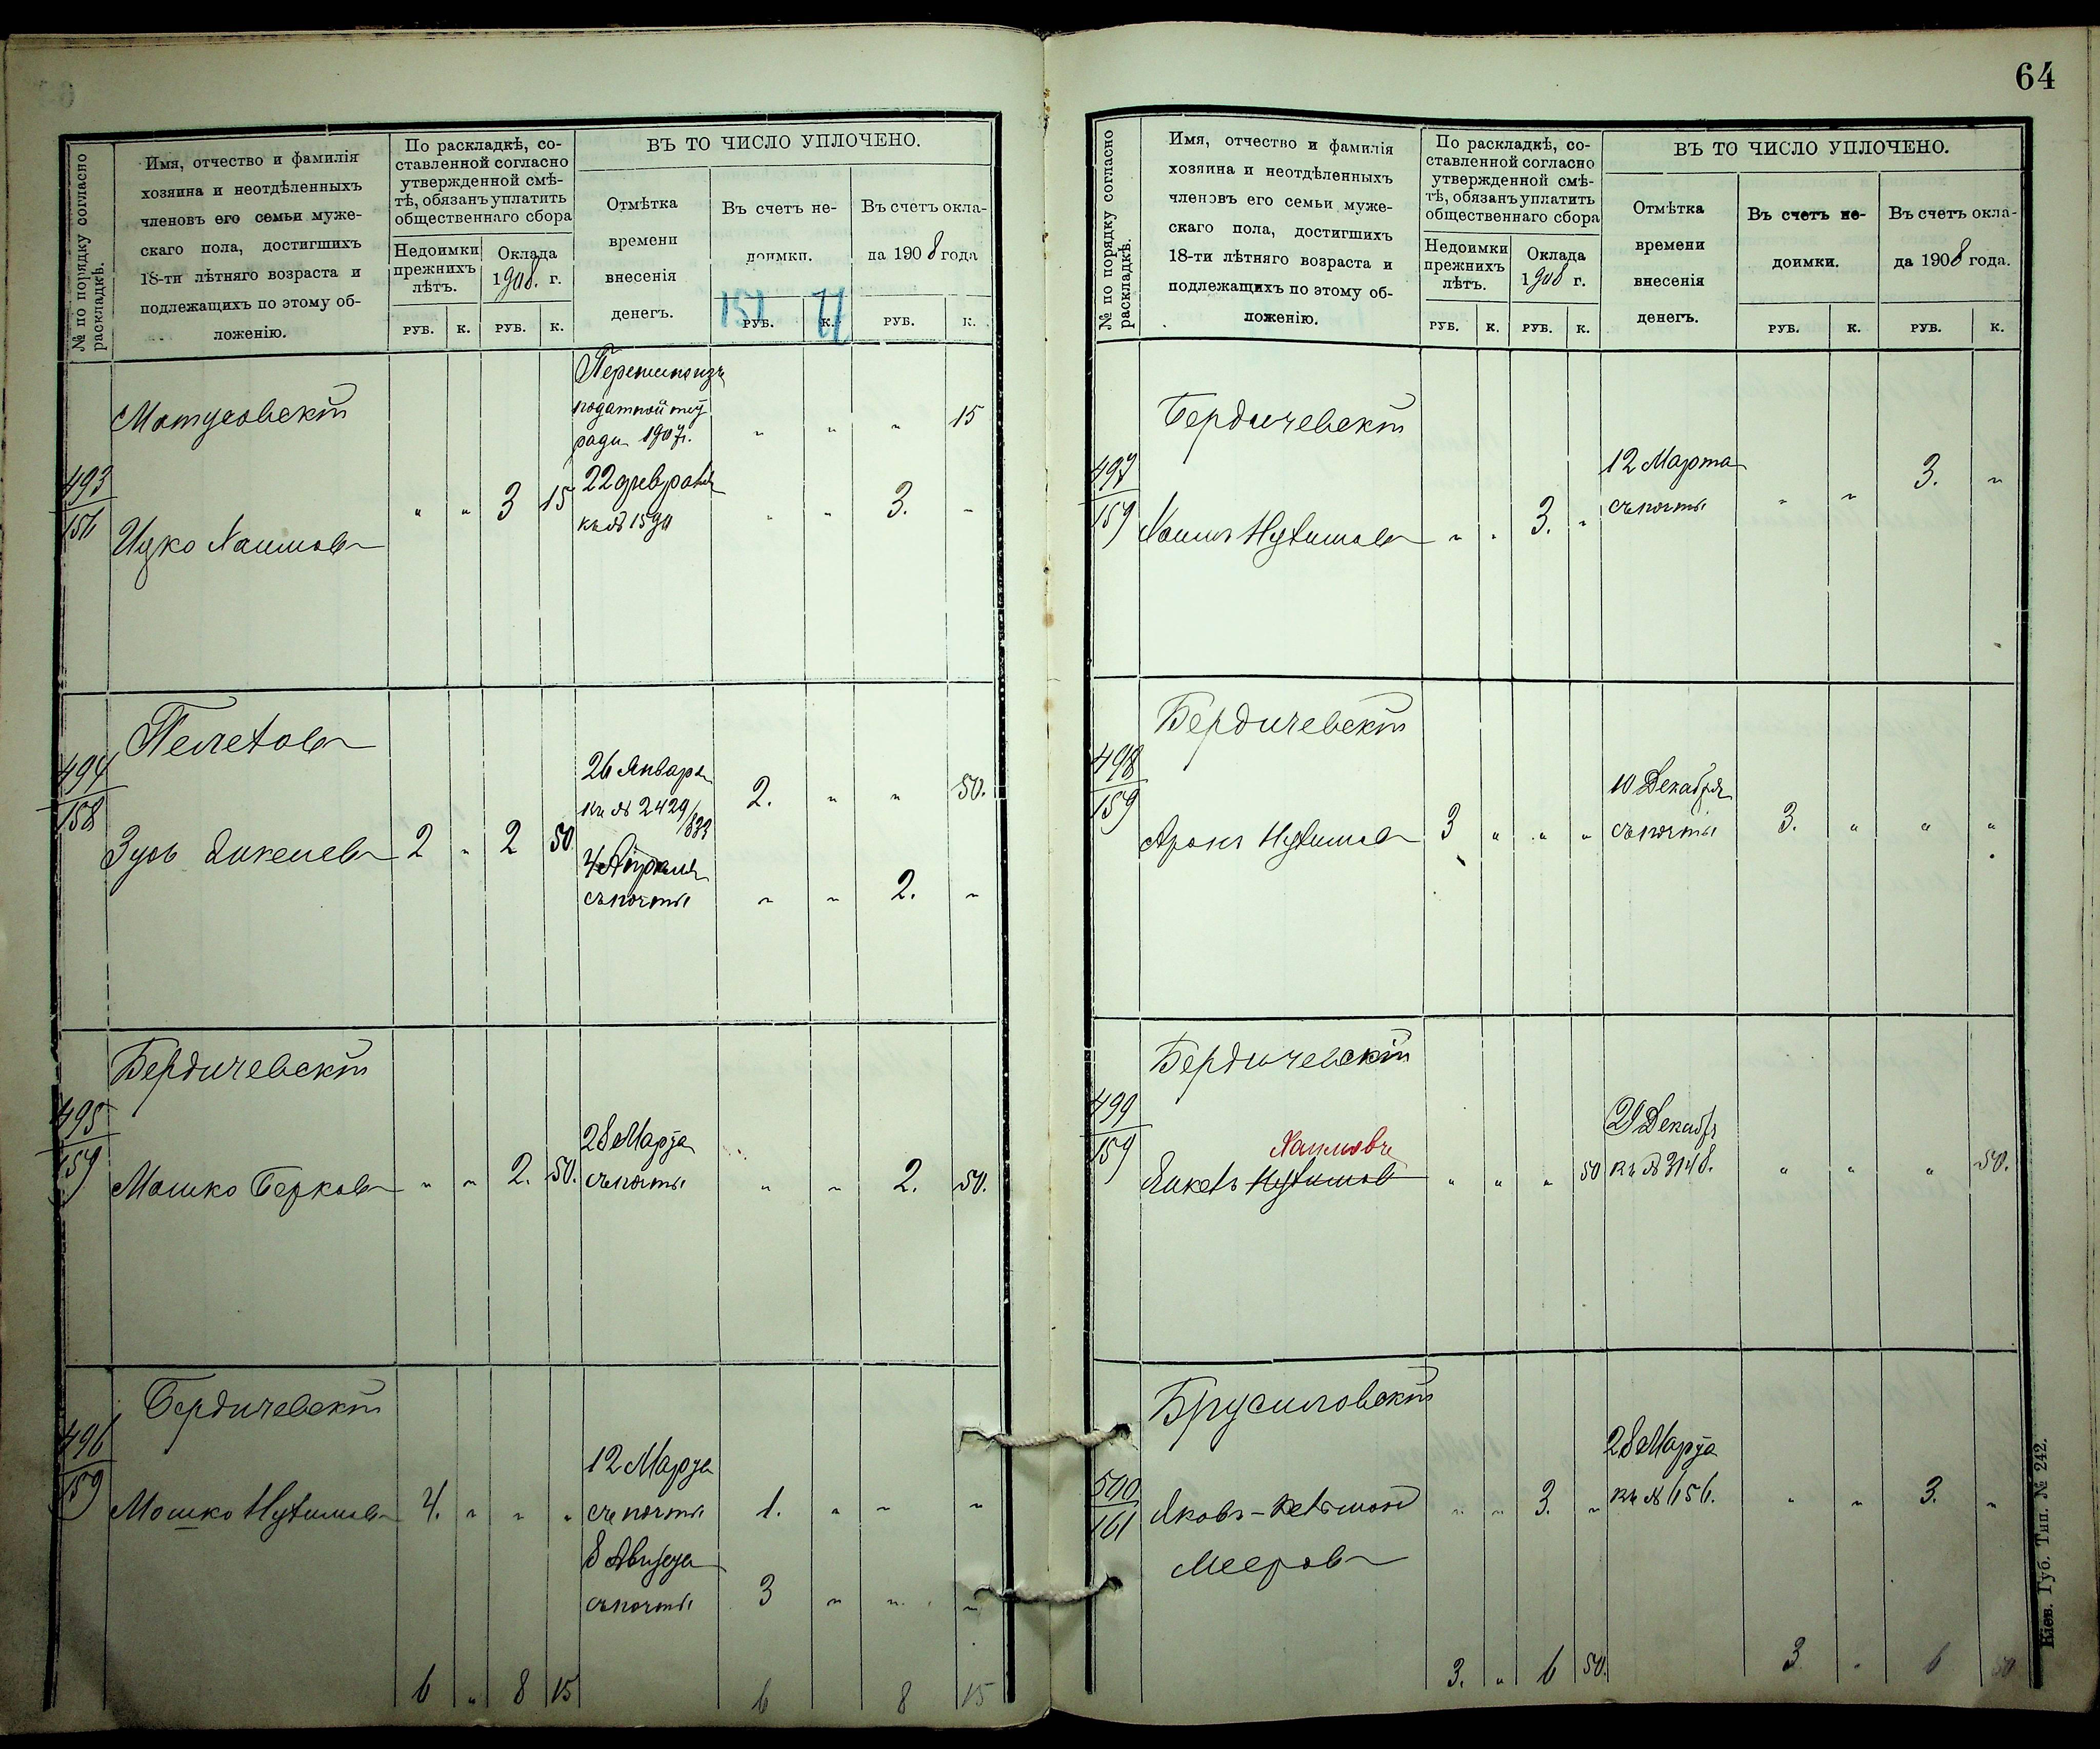 64
№ по порядку согласно раскладкѣ.
Имя, отчество и фамилія
хозяина и неотдѣленныхъ
членовъ его семьи муже-
скаго пола, достигшихъ
18-ти лѣтняго возраста и
подлежащихъ по этому об-
ложенію.
По раскладкѣ, со-
ставленной согласно
утвержденной смѣ-
тѣ, обязанъ уплатить
общественнаго сбора
Недоимки
прежнихъ
лѣтъ.
Оклада
1908. г.
РУБ. К. РУБ. К.
ВЪ ТО ЧИСЛО УПЛОЧЕНО.
Отмѣтка
времени
внесенія
денегъ.
Въ счетъ не-
доимки.
Въ счетъ окла-
да 1908 года
151
РУБ. К. РУБ. К.
Матусовскій
493/156
Ицко Хаимовъ
" " 3 15
податной тет
ради 1907 г.
" " " 15
22 февраля
къ № 1590
" " 3. -
494/158
2 " 2 50
26 Января
къ № 2429/833
2. " " 50.
4 Апрѣля
съ почты
" " 2. "
Бердичевскій
495/159
Мошко Берковъ
" " 2. 50.
28 Марта
съ почты
" " 2. 50.
Бердичевскій
496/159
Мошко Нухимовъ
4. " " "
12 Марта
съ почты
1. " " "
8 Августа
съ почты
3 " " "
6 " 8 15
6 8 15
№ по порядку согласно раскладкѣ.
Имя, отчество и фамилія
хозяина и неотдѣленныхъ
членовъ его семьи муже-
скаго пола, достигшихъ
18-ти лѣтняго возраста и
подлежащихъ по этому об-
ложенію.
По раскладкѣ, со-
ставленной согласно
утвержденной смѣ-
тѣ, обязанъ уплатить
общественнаго сбора
Недоимки
прежнихъ
лѣтъ.
Оклада
1908 г.
РУБ. К. РУБ. К.
ВЪ ТО ЧИСЛО УПЛОЧЕНО.
Отмѣтка
времени
внесенія
денегъ.
Въ счетъ не-
доимки.
Въ счетъ окла-
да 1908 года.
РУБ. К. РУБ. К.
Бердичевскій
497/159
Хаимъ Нухимовъ
" " 3. "
12 Марта
съ почты
" " 3. "
Бердичевскій
498/159
Аронъ Нухимовъ
3 " " "
10 Декабря
съ почты
3. " " "
Бердичевскій
499/159
Хаимовъ
Янкель Нухимовъ
" " " 50
29 Декабр
къ № 3148.
" " " 50.
Брусиловскій
500/161
Мееровъ
" " 3. "
28 Марта
къ № 1656.
" " 3. "
3. " 6 50.
3 " 6 50
Кіев. Губ. Тип. № 242.